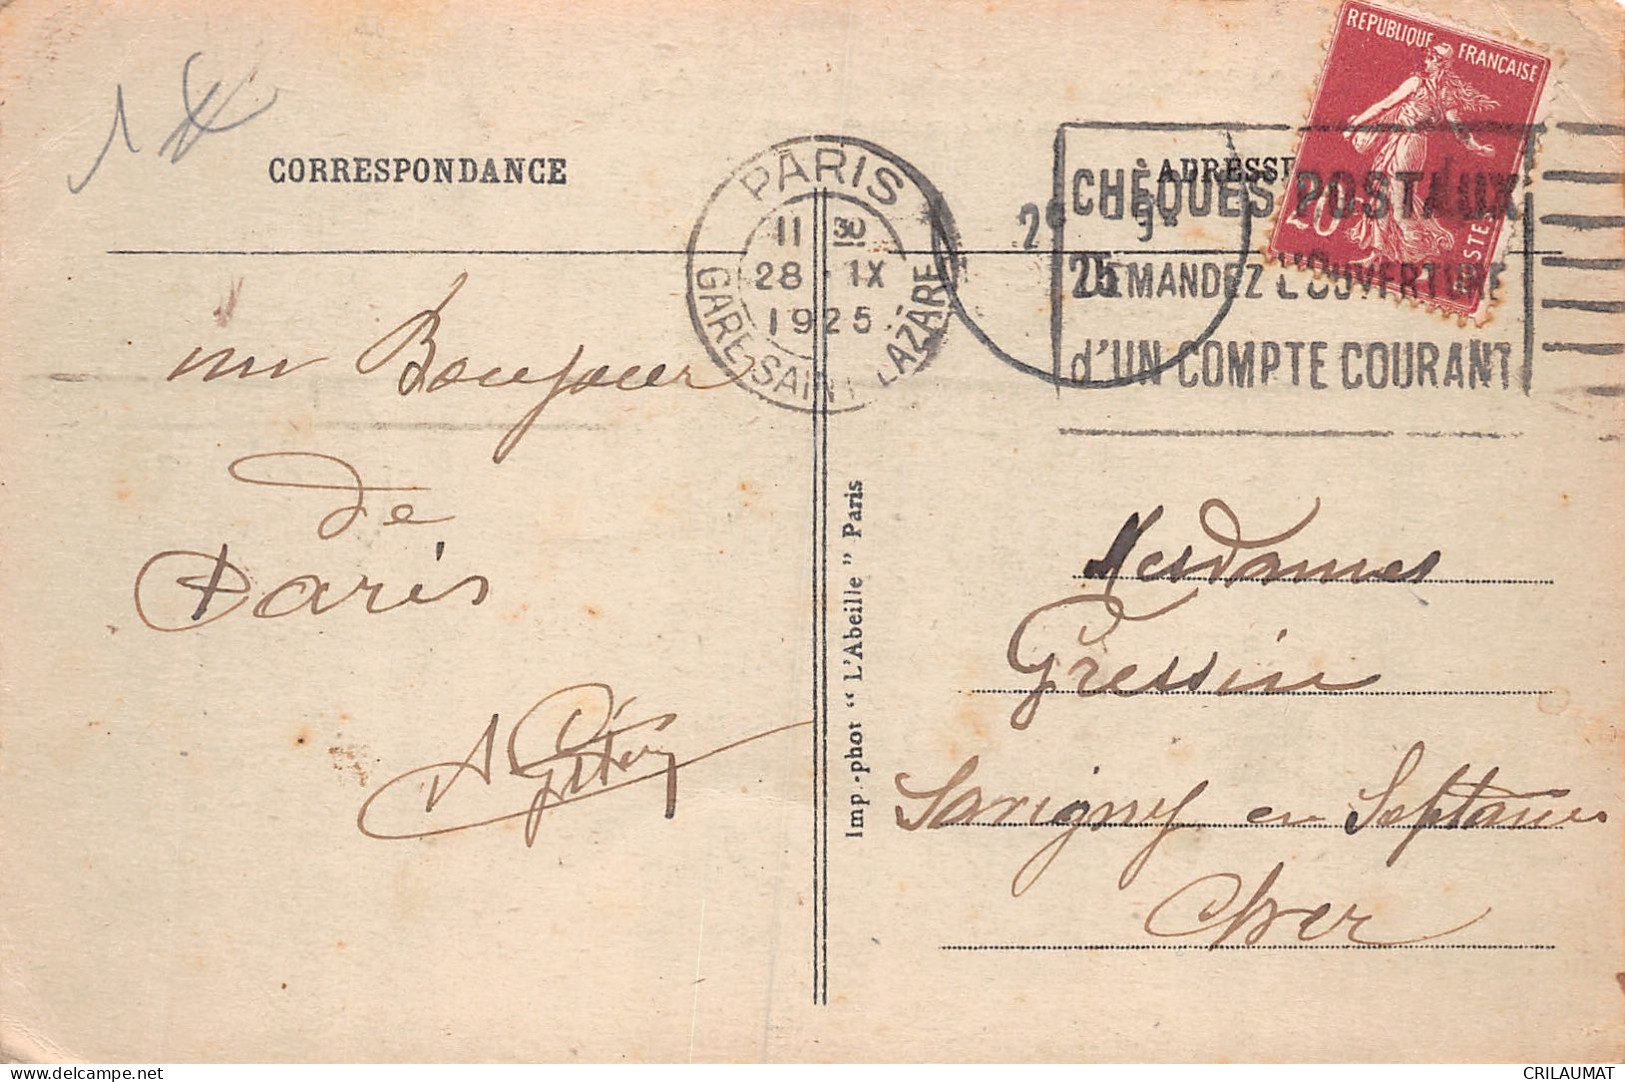 CORRESPONDANCE
ADRESSE
RÉPUBLIQUE FRANÇAISE
20
POSTES
PARIS
11 30
28 - IX
1925
GARE SAINT LAZARE
25
CHÈQUES POSTAUX
DEMANDEZ L'OUVERTURE
d'UN COMPTE COURANT
un Bonjour
de
Paris
Imp.-phot "L'Abeille" Paris
Mesdames
Gressin
Savigny en Septaine
Cher
delcampe.net
CRILAUMAT